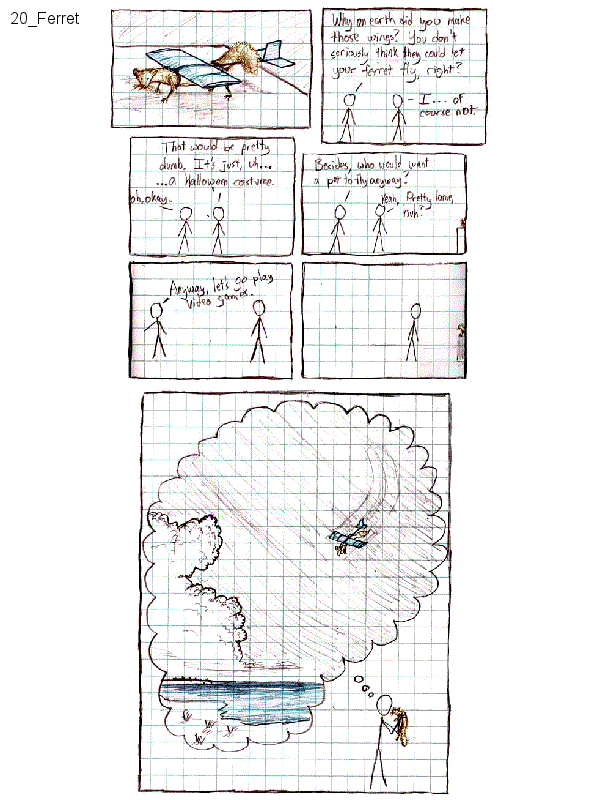 20_Ferret
Why on earth did you make
those wings? You don't
seriously think they could let
your ferret fly, right?
I... of
course not.
That would be pretty
dumb. It's just, uh...
...a Halloween costume.
oh, okay.
Besides, who would want
a pet to fly anyway?
Yeah. Pretty lame,
huh?
Anyway, let's go play
video games.